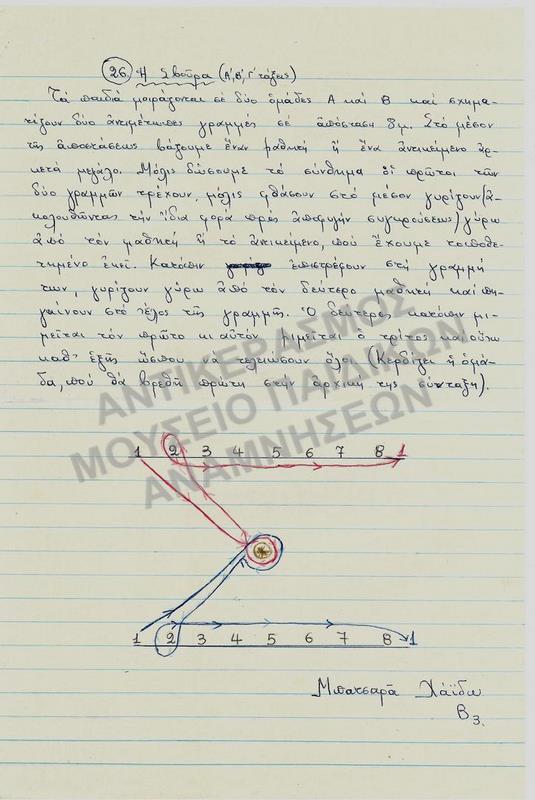 26. Ἡ Σβούρα (Α΄, Β΄, Γ΄ τάξεις)
Τά παιδιά μοιράζονται σέ δύο ὁμάδες Α καί Β καί σχημα-
τίζουν δύο ἀντιμέτωπες γραμμές σέ ἀπόσταση 8μ. Στό μέσον
τῆς ἀποστάσεως βάζουμε ἕναν μαθητή ἤ ἕνα ἀντικείμενο ἀρ-
κετά μεγάλο. Μόλις δώσουμε τό σύνθημα οἱ πρῶτοι τῶν
δύο γραμμῶν τρέχουν, μόλις φθάσουν στό μέσον γυρίζουν (ἀ-
κολουθῶντας τήν ἴδια φορά πρός ἀποφυγήν συγκρούσεως) γύρω
ἀπό τόν μαθητή ἤ τό ἀντικείμενο, πού ἔχουμε τοποθε-
τημένο ἐκεῖ. Κατόπιν ἐπιστρέφουν στή γραμμή
των, γυρίζουν γύρω ἀπό τόν δεύτερο μαθητή καί πη-
γαίνουν στό τέλος τῆς γραμμῆς. Ὁ δεύτερος κατόπιν μι-
μεῖται τόν πρῶτο κι αὐτόν μιμεῖται ὁ τρίτος καί οὕτω
καθ' ἑξῆς ὥσπου νά τελειώσουν ὅλοι (Κερδίζει ἡ ὁμά-
δα, πού θά βρεθῆ πρώτη στήν ἀρχική της σύνταξη).
ΑΝΤΙΚΕΡΒΑΣΜΟΣ
ΜΟΥΣΕΙΟ ΠΑΙΔΙΚΩΝ
ΑΝΑΜΝΗΣΕΩΝ
1 2 3 4 5 6 7 8 1
1 2 3 4 5 6 7 8 1
Μπατσαρᾶ Χάϊδω
Β3.